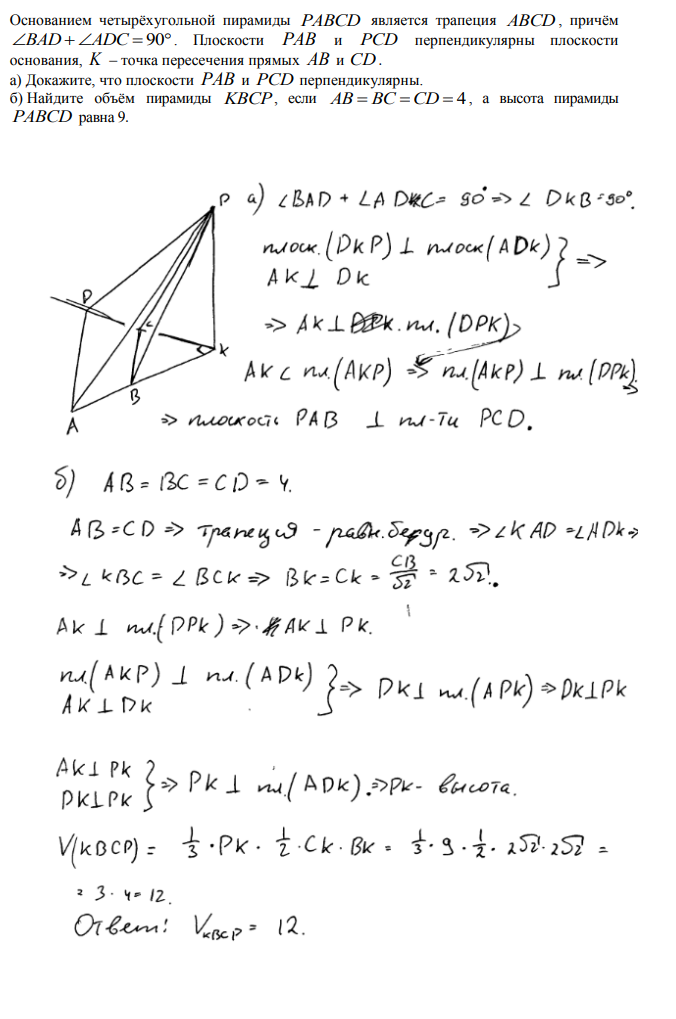 Основанием четырёхугольной пирамиды PABCD является трапеция ABCD, причём
∠BAD + ∠ADC = 90°. Плоскости PAB и PCD перпендикулярны плоскости
основания, K – точка пересечения прямых AB и CD.
а) Докажите, что плоскости PAB и PCD перпендикулярны.
б) Найдите объём пирамиды KBCP, если AB = BC = CD = 4, а высота пирамиды
PABCD равна 9.
P
D
C
K
B
A
а) ∠BAD + ∠ADC = 90° => ∠ DKB = 90°.
плоск. (DKP) ⊥ плоск (ADK) } =>
AK ⊥ DK
=> AK ⊥ пл. (DPK)
AK ⊂ пл.(AKP) => пл.(AKP) ⊥ пл.(DPK). =>
=> плоскость PAB ⊥ пл-ти PCD.
б) AB = BC = CD = 4.
AB = CD => трапеция - равн.бедр. => ∠KAD = ∠ADK =>
=> ∠KBC = ∠BCK => BK = CK = CB/√2 = 2√2.
AK ⊥ пл.(DPK) => AK ⊥ PK.
пл.(AKP) ⊥ пл.(ADK) } => DK ⊥ пл.(APK) => DK ⊥ PK
AK ⊥ DK
AK ⊥ PK } => PK ⊥ пл.(ADK). => PK - высота.
DK ⊥ PK
V(KBCP) = 1/3 · PK · 1/2 · CK · BK = 1/3 · 9 · 1/2 · 2√2 · 2√2 =
= 3 · 4 = 12.
Ответ: V_KBCP = 12.